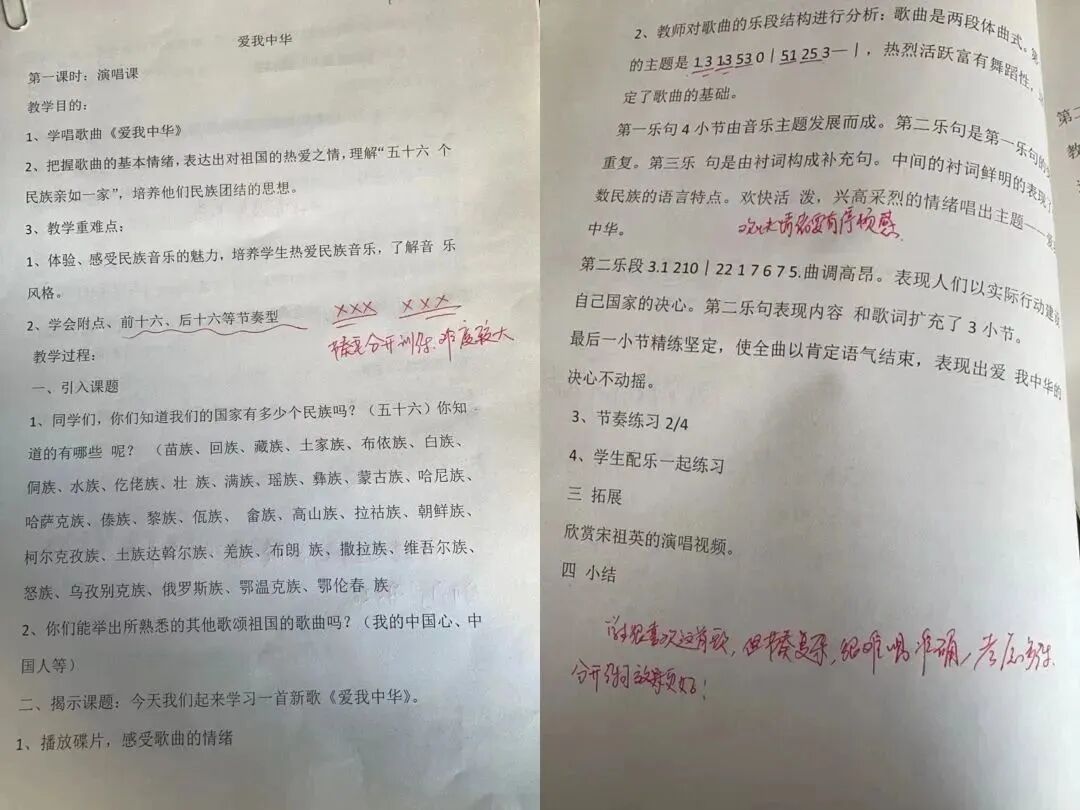 爱我中华
第一课时：演唱课
教学目的：
1、学唱歌曲《爱我中华》
2、把握歌曲的基本情绪，表达出对祖国的热爱之情，理解“五十六 个
民族亲如一家”，培养他们民族团结的思想。
3、教学重难点；
1、体验、感受民族音乐的魅力，培养学生热爱民族音乐，了解音 乐
风格。
2、学会附点、前十六、后十六等节奏型
XXX XXX
节奏分开训练，难度较大
教学过程：
一、引入课题
1、同学们，你们知道我们的国家有多少个民族吗？（五十六）你知
道的有哪些 呢？ （苗族、回族、藏族、土家族、布依族、白族、
侗族、水族、仡佬族、壮 族、满族、瑶族、彝族、蒙古族、哈尼族、
哈萨克族、傣族、黎族、佤族、 畲族、高山族、拉祜族、朝鲜族、
柯尔克孜族、土族达斡尔族、羌族、布朗 族、撒拉族、维吾尔族、
怒族、乌孜别克族、俄罗斯族、鄂温克族、鄂伦春 族
2、你们能举出所熟悉的其他歌颂祖国的歌曲吗？（我的中国心、中
国人等）
二、揭示课题：今天我们起来学习一首新歌《爱我中华》。
1、播放碟片，感受歌曲的情绪
2、教师对歌曲的乐段结构进行分析：歌曲是两段体曲式。第
的主题是 1.3 13 53 0｜51 25 3一｜，热烈活跃富有舞蹈性，
定了歌曲的基础。
第一乐句 4 小节由音乐主题发展而成。第二乐句是第一乐句的
重复。第三乐 句是由衬词构成补充句。中间的衬词鲜明的表现了
数民族的语言特点。欢快活 泼，兴高采烈的情绪唱出主题——爱
中华。
欢快情绪要有停顿感
第二乐段 3.1 210｜22 1 7 6 7 5.曲调高昂。表现人们以实际行动建设
自己国家的决心。第二乐句表现内容 和歌词扩充了 3 小节。
最后一小节精练坚定，使全曲以肯定语气结束，表现出爱 我中华的
决心不动摇。
3、节奏练习 2/4
4、学生配乐一起练习
三 拓展
欣赏宋祖英的演唱视频。
四 小结
喜欢这首歌，但节奏复杂，很难唱准确，
分开练习效果更好！
第二
教